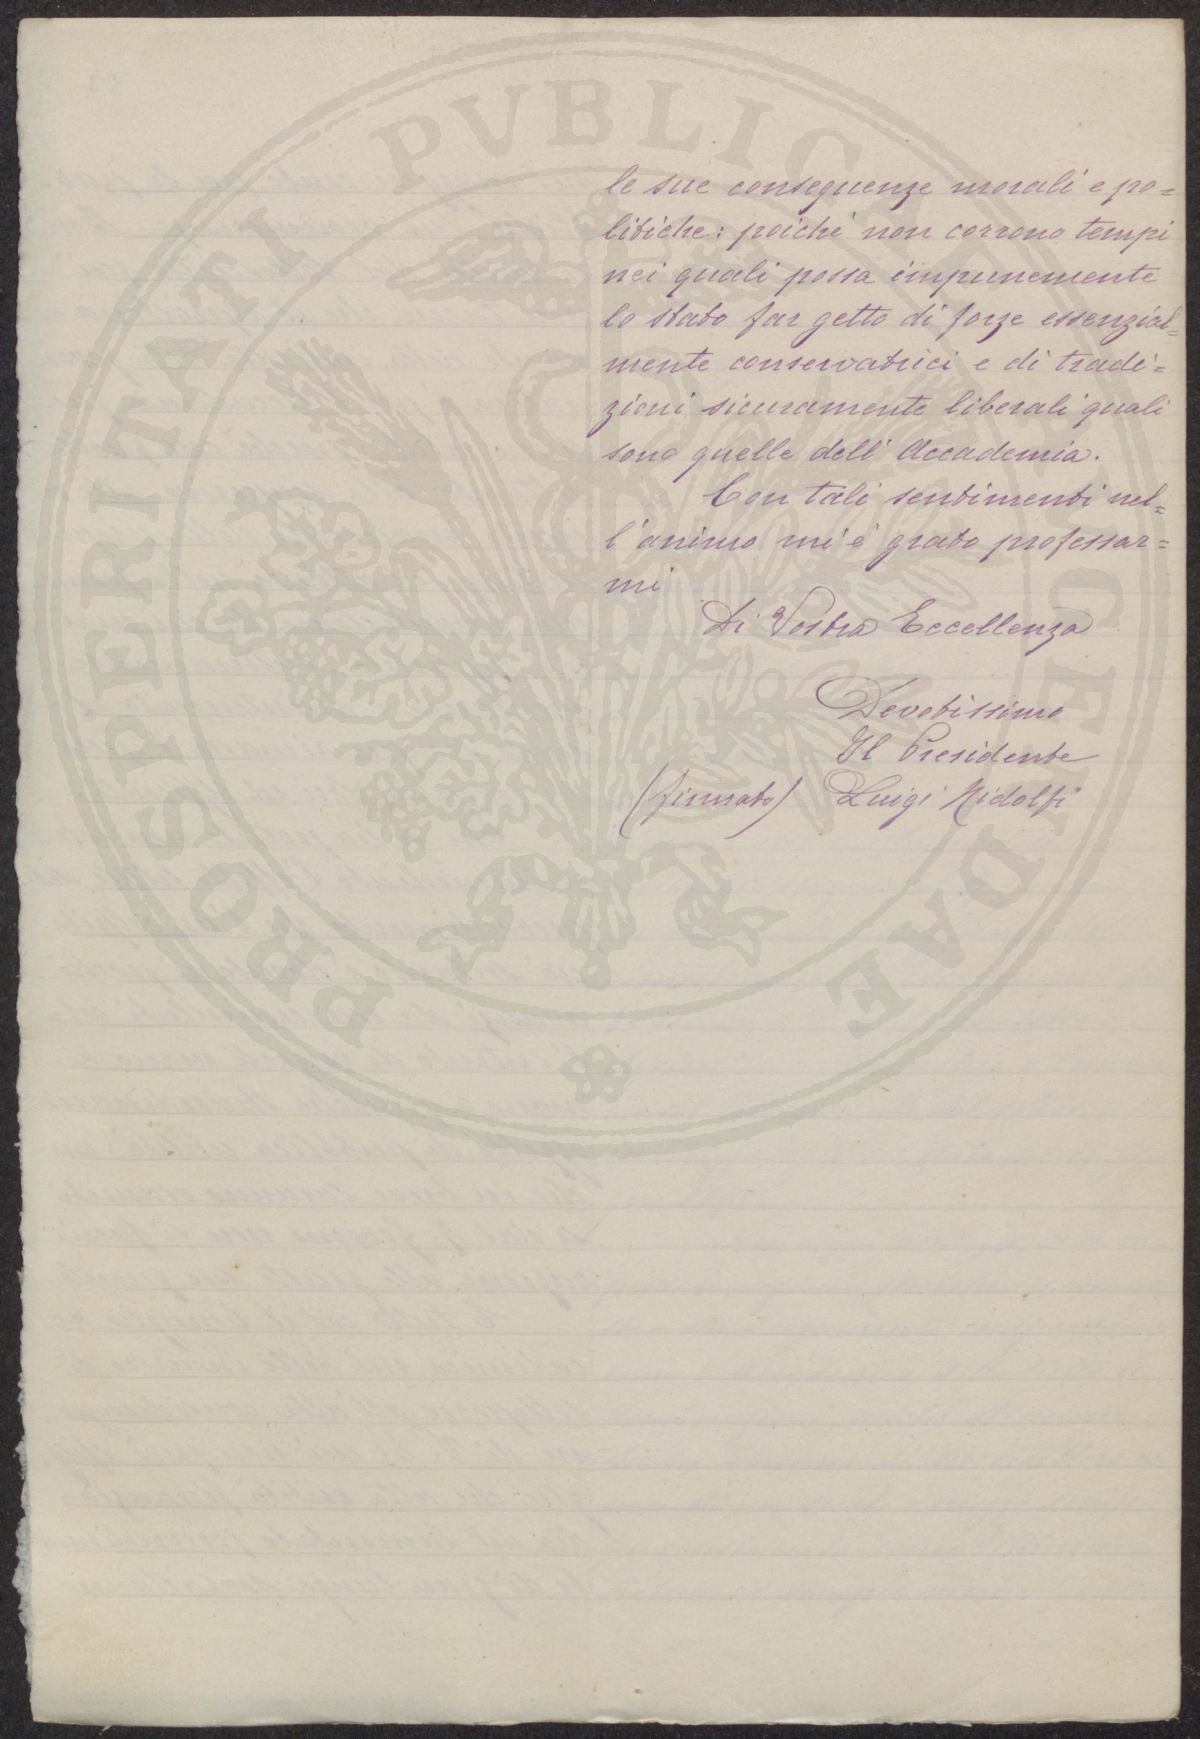 PROSPERITATI PVBLICAE AVGENDAE
le sue conseguenze morali e po=
litiche: poichè non corrono tempi
nei quali possa impunemente
lo stato far getto di forze essenzial=
mente conservatrici e di tradi=
zioni sicuramente liberali quali
sono quelle dell' Accademia.
Con tali sentimenti nel=
l'animo mi è grato professar=
mi
Di Vostra Eccellenza
Devotissimo
Il Presidente
(firmato) Luigi Ridolfi